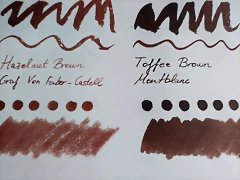 Hazelnut Brown
Graf Von Faber-Castell
Toffee Brown
Montblanc